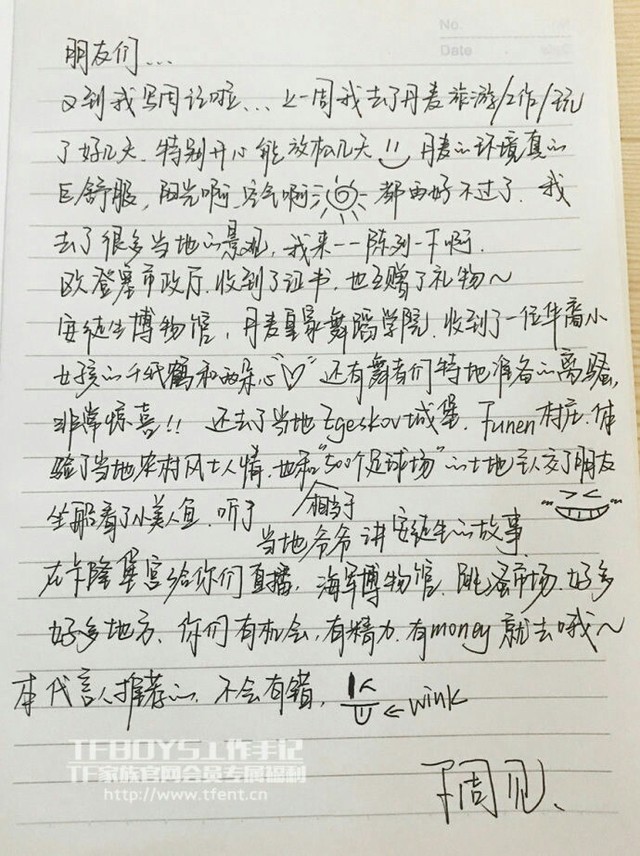 No.
Date
朋友们...
又到我写周记啦...上一周我去了丹麦旅游/工作/玩
了好几天.特别开心能放松几天 丹麦的环境真的
巨舒服,阳光啊,空气啊 都再好不过了.我
去了很多当地的景观,我来一一陈列一下啊.
欧登塞市政厅.收到了证书,也互赠了礼物~
安徒生博物馆,丹麦皇家舞蹈学院.收到了一位华裔小
女孩的千纸鹤和两朵心"♡"还有舞者们特地准备的离骚,
非常惊喜!!还去了当地Egeskov城堡.Funen村庄.体
验了当地农村风土人情.也和"500个足球场"的土地主人交了朋友
相当于
坐船看了小美人鱼.听了
当地爷爷讲安徒生的故事.
在卡隆堡宫给你们直播,海军博物馆.跳蚤市场.好多
好多地方.你们有机会,有精力.有money就去哦~
本代言人推荐的.不会有错, ←wink
TFBOYS工作手记
TF家族官网会员专属福利
http://www.tfent.cn
下周见、